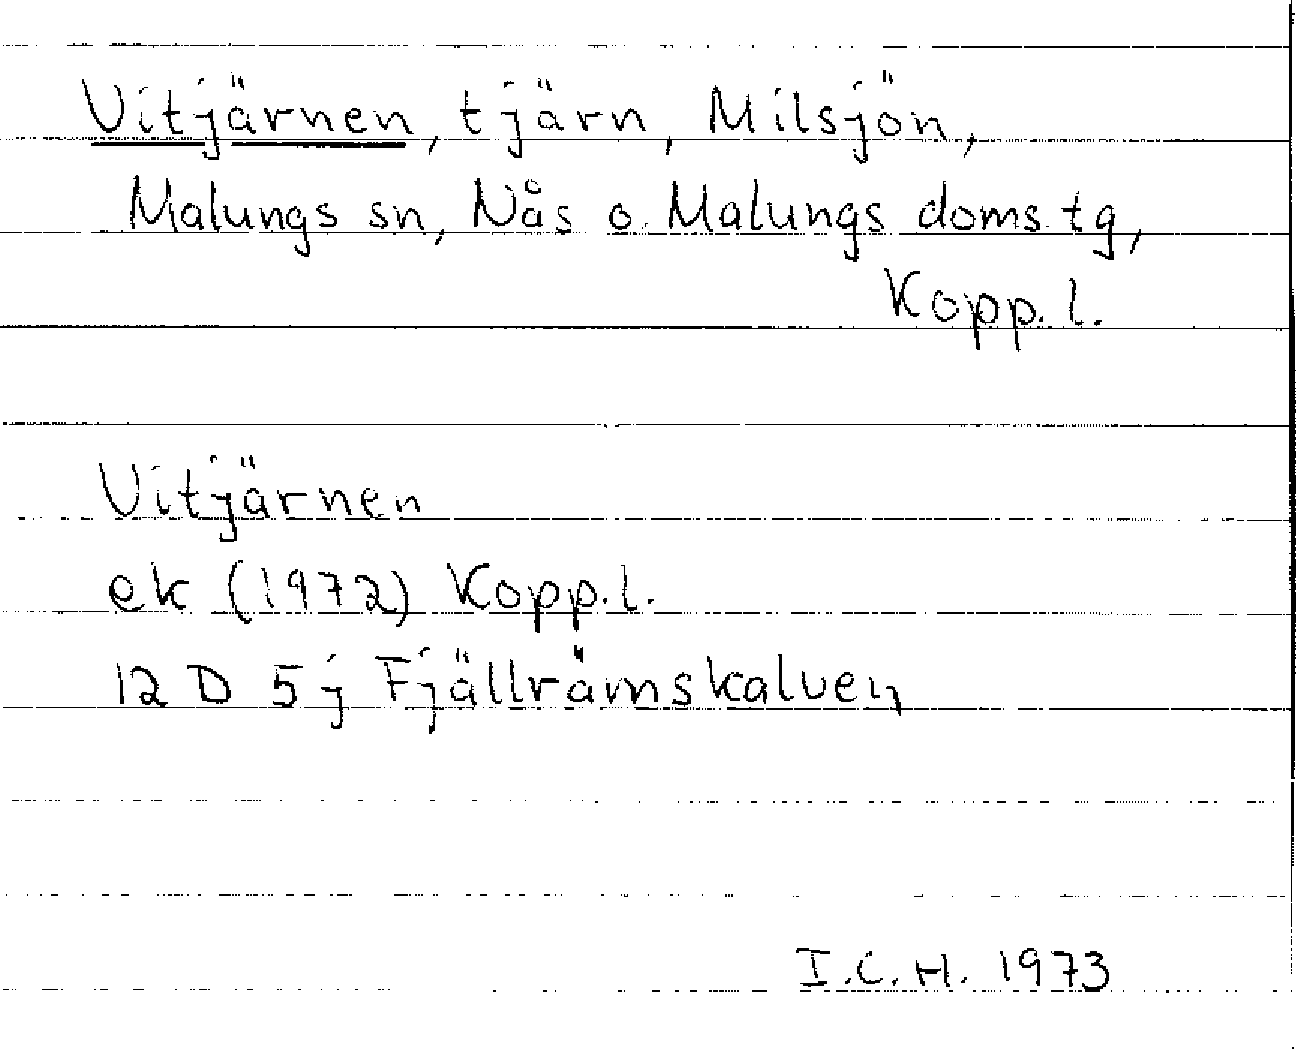 Vitjärnen, tjärn, Milsjön,
Malungs sn, Nås o. Malungs doms.tg,
Kopp.l.
Vitjärnen
ek (1972) Kopp.l.
12 D 5 j Fjällrämskalven
I.C.H. 1973